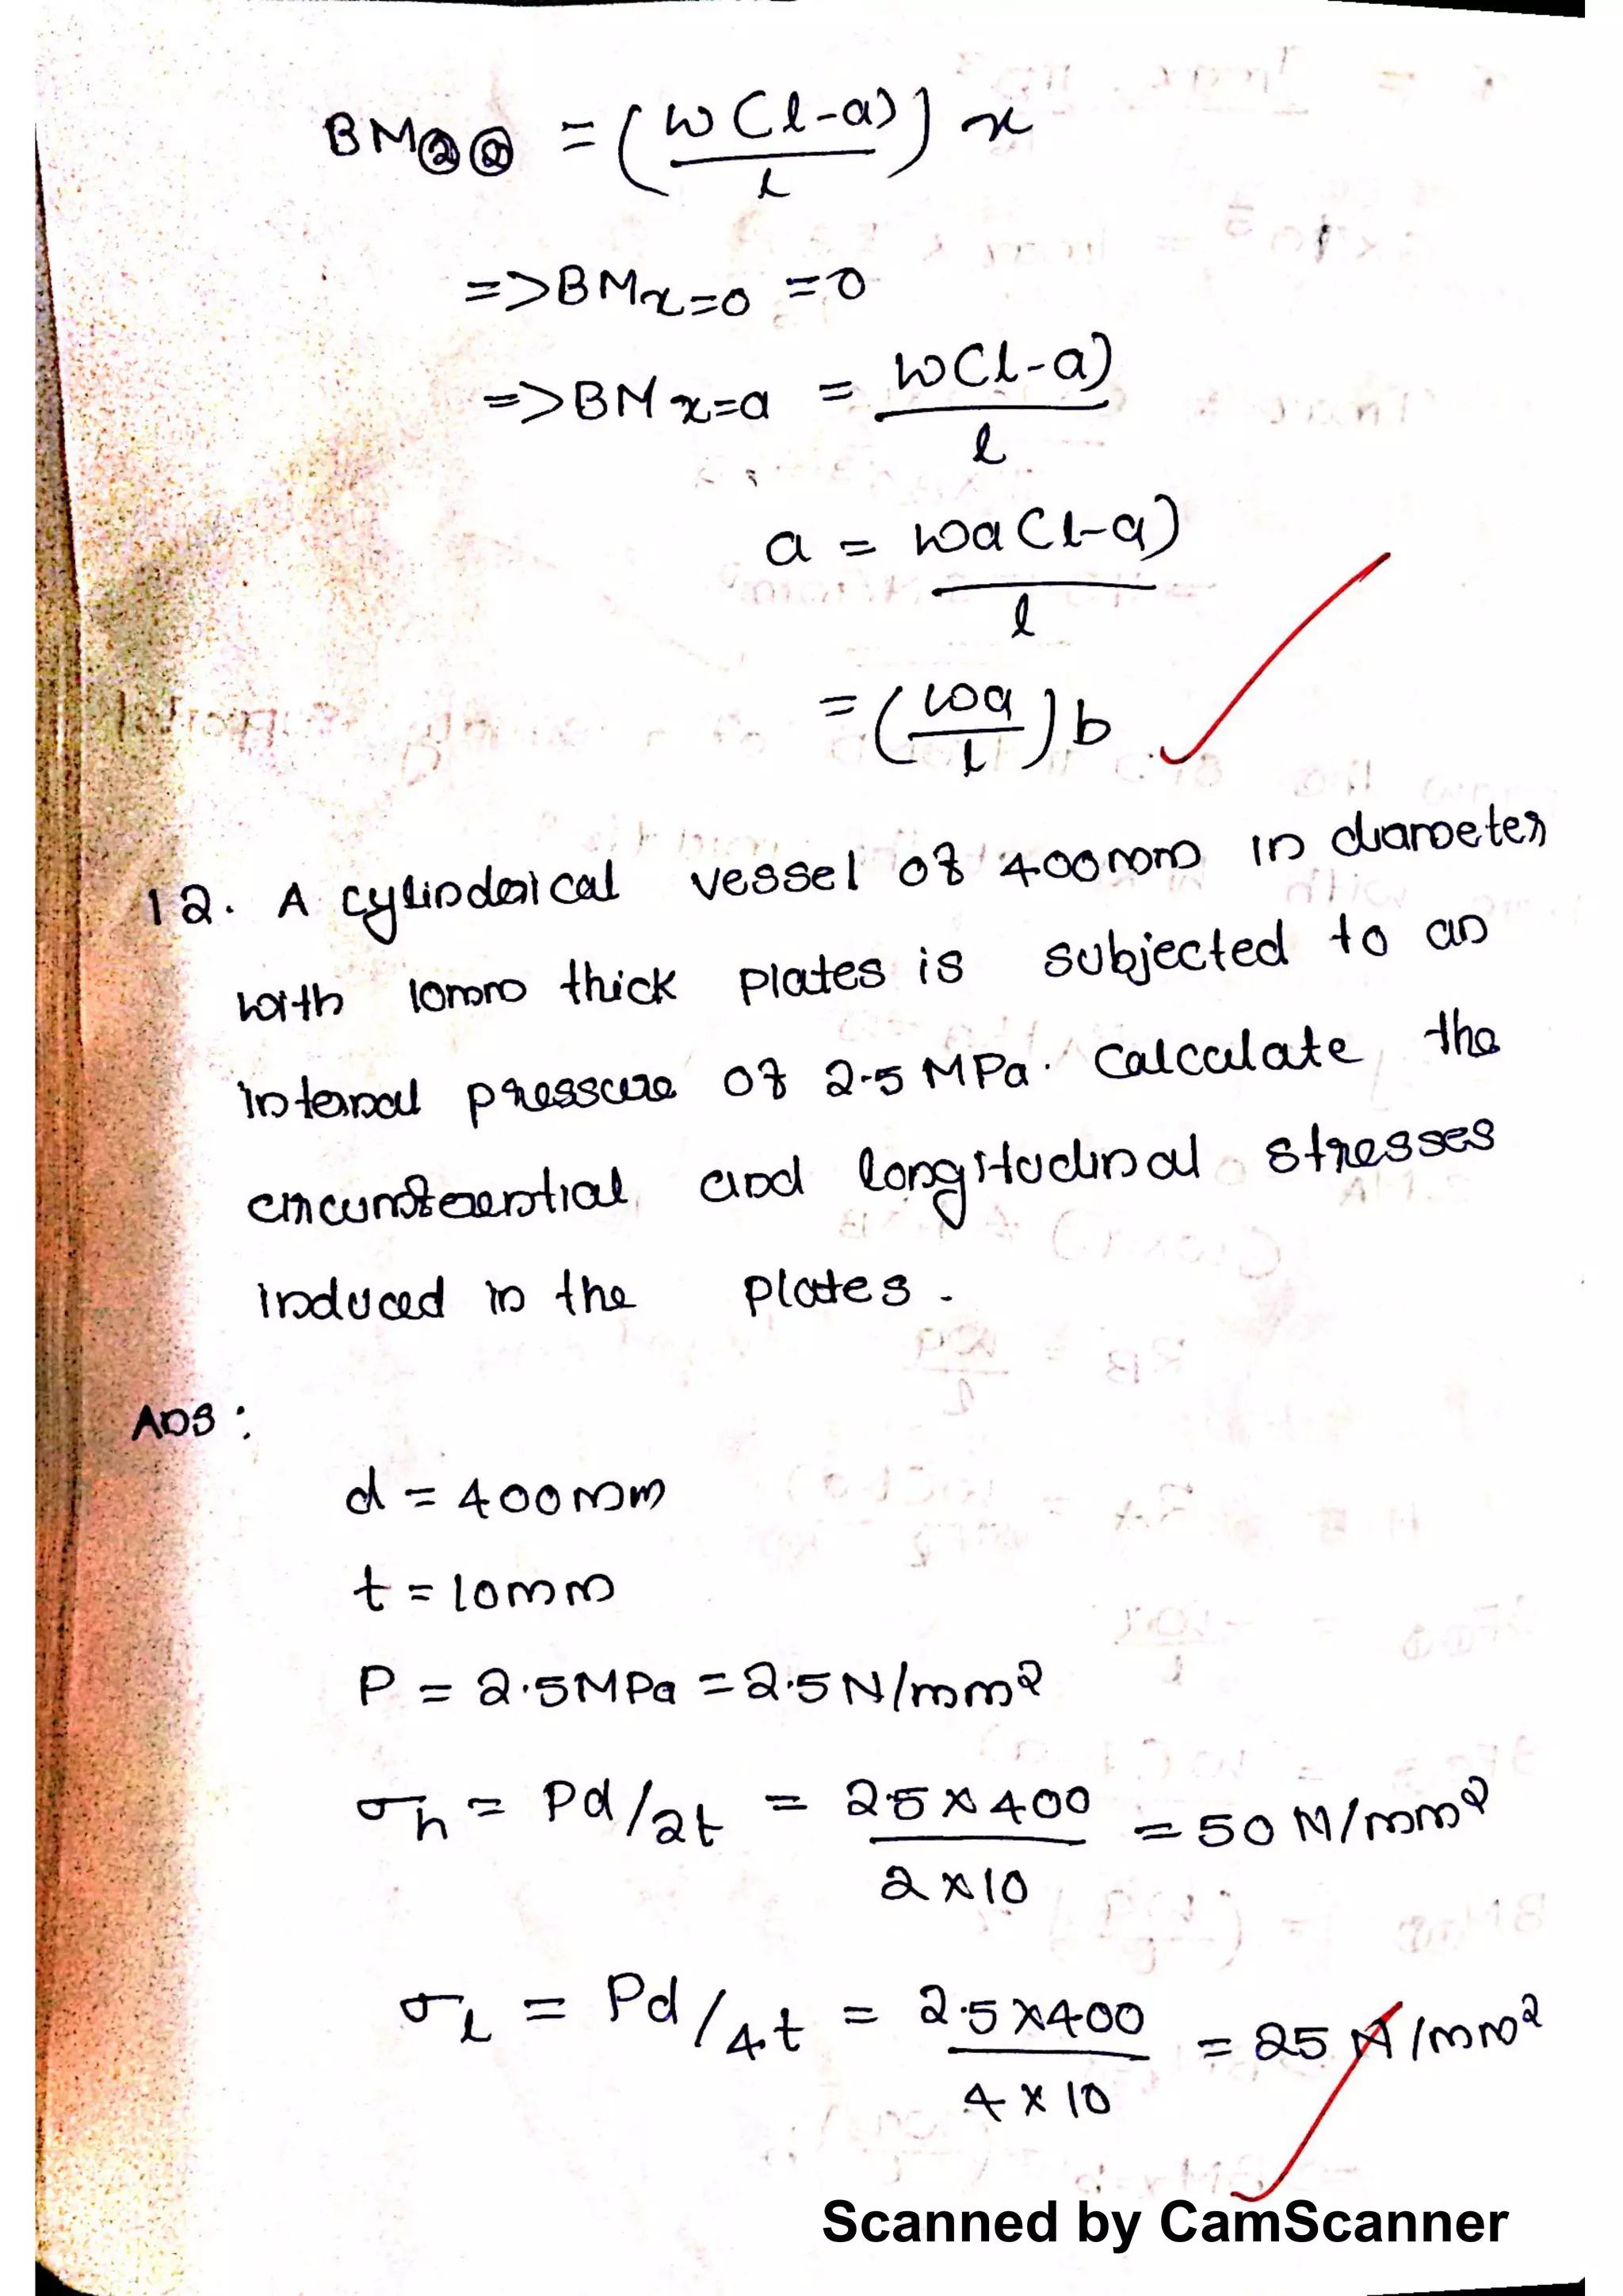 BM②② = (w(l-a)/l) x
=> BM x=0 = 0
=> BM x=a = w(l-a)/l
a = wa(l-a)/l
= (wa/l) b
12. A cylinderical vessel of 400mm in diameter
with 10mm thick plates is subjected to an
internal pressure of 2.5 MPa. Calculate the
circumferential and longitudinal stresses
induced in the plates.
Ans :
d = 400mm
t = 10mm
P = 2.5MPa = 2.5 N/mm²
σh = Pd/2t = 2.5 × 400 / 2×10 = 50 N/mm²
σl = Pd/4t = 2.5 ×400 / 4 × 10 = 25 N/mm²
Scanned by CamScanner